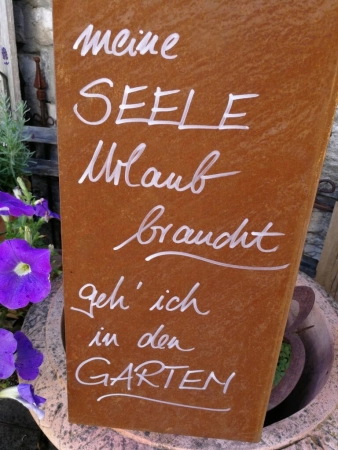 meine
SEELE
Urlaub
braucht
geh' ich
in den
GARTEN